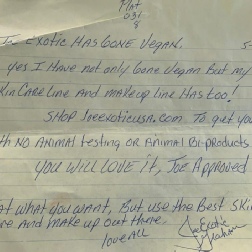 Plat
03t
8
Joe Exotic Has Gone Vegan. 5-
Yes I Have not only Gone Vegan But my
Skin Care Line and makeup Line Has too!
Shop Joeexoticusa.com. To get you
ith NO Animal testing or Animal Bi-products.
You will love it, Joe Approved
at what you want, But use the Best Skin
re and make up out there.
love ALL Joe Exotic